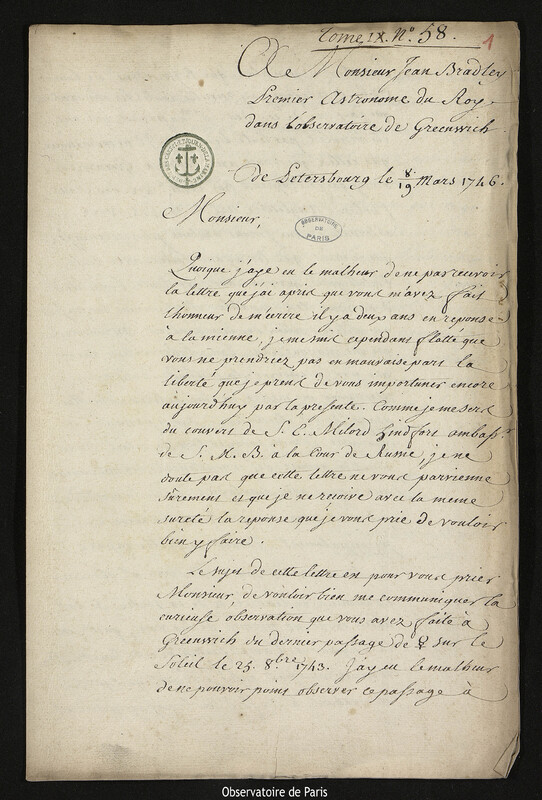 Tome IX. N.º 58.
1
A Monsieur Jean Bradley
Premier Astronome du Roy
dans l'observatoire de Greenwich.
De Petersbourg le 8/19 Mars 1746.
Monsieur,
OBSERVATOIRE
DE
PARIS
Quoique j'aye eu le malheur de ne pas recevoir
la lettre que j'ai apris que vous m'avez fait
l'honneur de m'ecrire il y a deux ans en reponse
à la mienne, je me suis cependant flatté que
vous ne prendriez pas en mauvaise part la
liberté que je prens de vous importuner encore
aujourd'huy par la presente. Comme je me sers
du couvert de S. E. Milord Hindfort ambass.r
de S. M. B. à la Cour de Russie, je ne
doute pas que cette lettre ne vous parvienne
surement et que je ne reçoive avec la meme
sureté la reponse que je vous prie de vouloir
bien y faire.
Le sujet de cette lettre est pour vous prier
Monsieur de vouloir bien me communiquer la
curieuse observation que vous avez faite à
Greenwich du dernier passage de ☿ sur le
Soleil le 25. 8.bre 1743. J'ay eu le malheur
de ne pouvoir point observer ce passage à
Observatoire de Paris